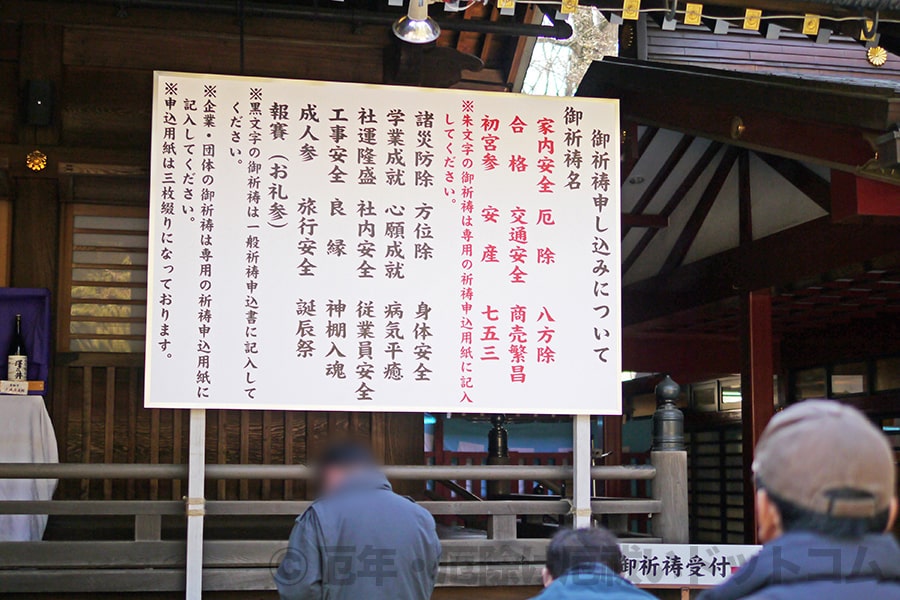 御祈祷申し込みについて
御祈祷名
家内安全 厄除 八方除
合格 交通安全 商売繁昌
初宮参 安産 七五三
※朱文字の御祈祷は専用の祈祷申込用紙に記入
してください。
諸災防除 方位除 身体安全
学業成就 心願成就 病気平癒
社運隆盛 社内安全 従業員安全
工事安全 良縁 神棚入魂
成人参 旅行安全 誕辰祭
報賽(お礼参)
※黒文字の御祈祷は一般祈祷申込書に記入して
ください。
※企業・団体の御祈祷は専用の祈祷申込用紙に
記入してください。
※申込用紙は三枚綴りになっております。
御祈祷受付
© 厄年・厄除け厄祓いドットコム